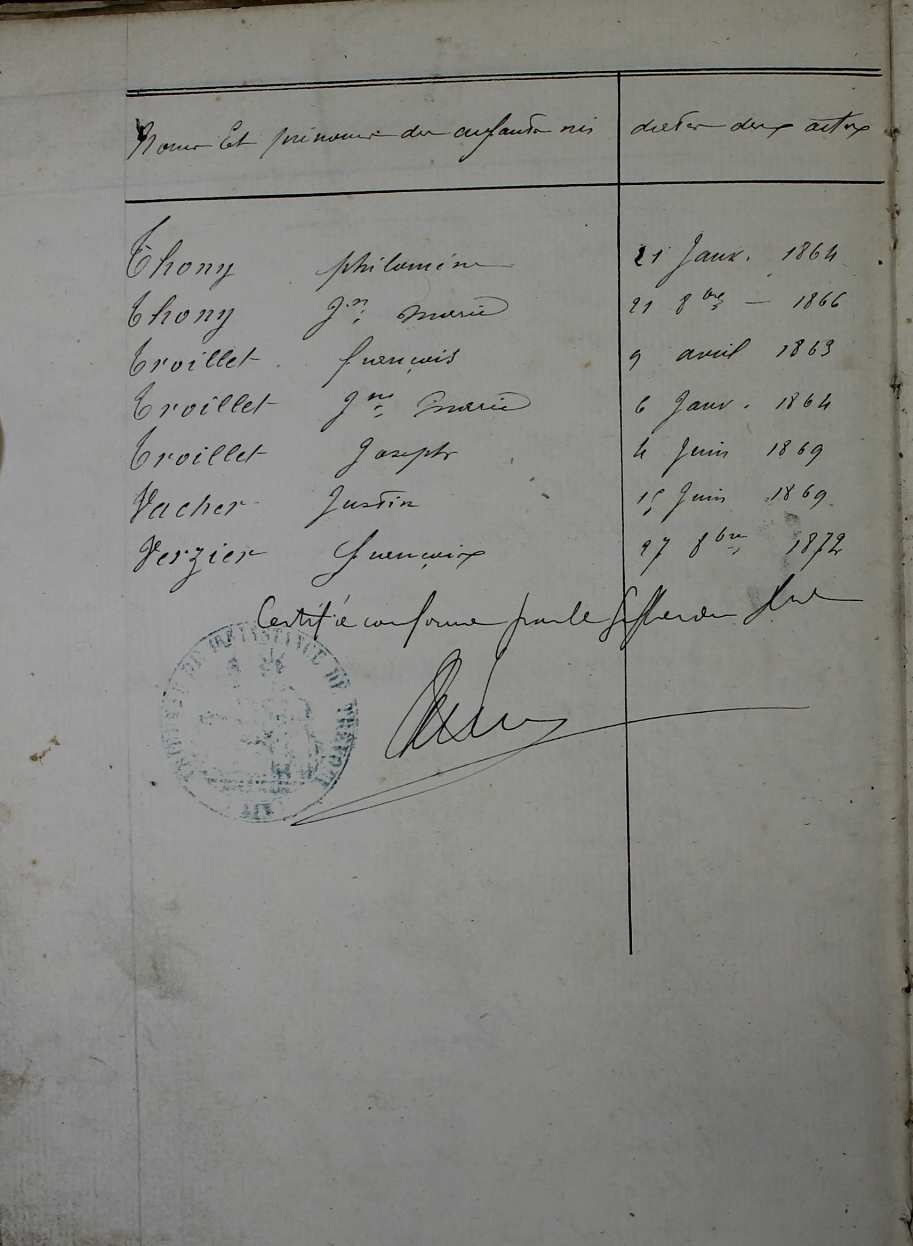 Noms Et prénoms des enfants nés dates des actes
Thony philomène 21 Janv. 1864
Thony Jn Marie 21 8bre — 1866
Troillet françois 9 avril 1863
Troillet Jne Marie 6 Janv. 1864
Troillet Joseph 4 Juin 1869
Vacher Justin 15 Juin 1869
Verzier françois 27 8bre 1872
Certifié conforme par le Greffier
TRIBUNAL DE 1RE INSTANCE DE